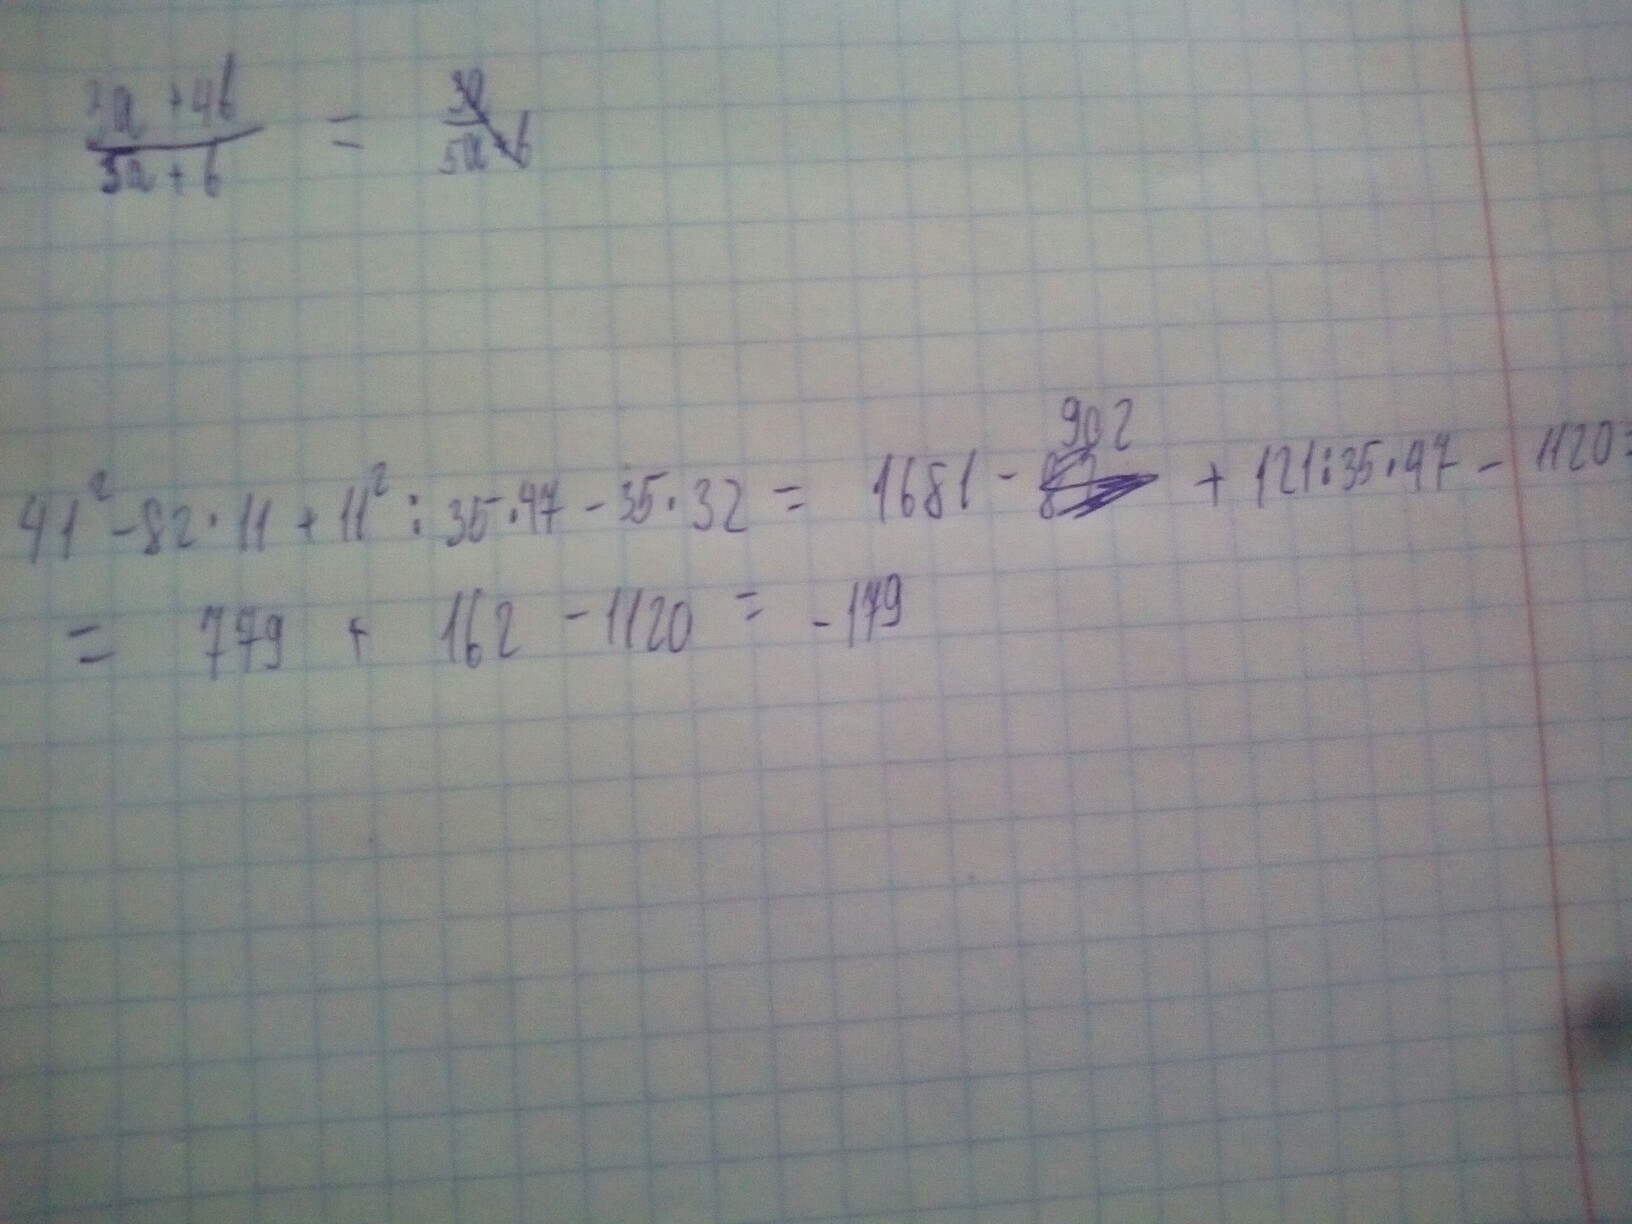 3a + 4b / 5a + b = 3a / 5a + b
41² - 82 · 11 + 11² : 35 · 47 - 35 · 32 = 1681 - 902 + 121 : 35 · 47 - 1120 =
= 779 + 162 - 1120 = - 179